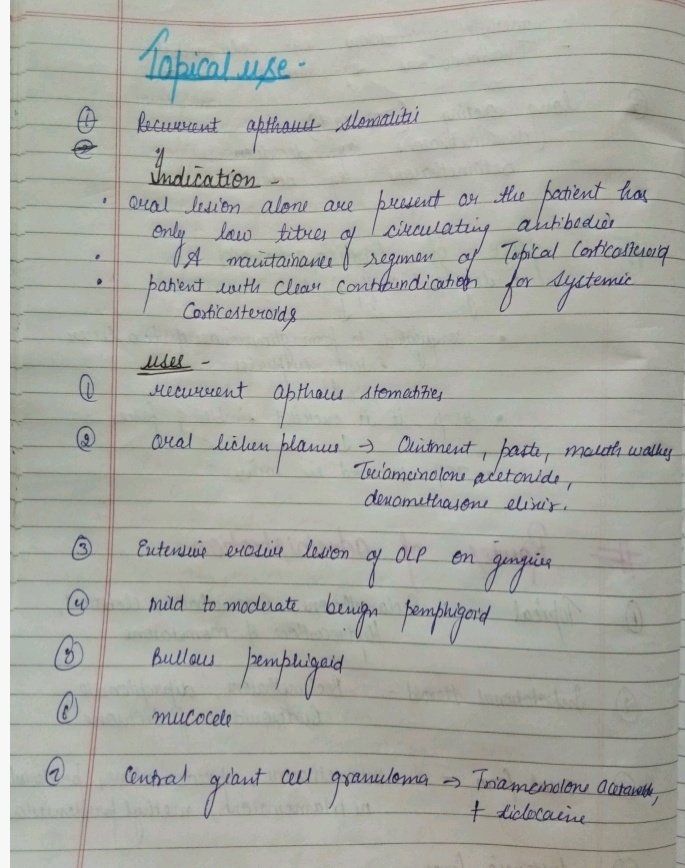 Topical use -
① Recurrent apthous stomatitis
②
Indication -
• Oral lesion alone are present or the patient has
only low titres of circulating antibodies
• A maintainance regimen of Topical Corticosteroid
• patient with clear contraindication for systemic
Corticosteroids
uses -
① recurrent apthous stomatities
② oral lichen planus → Ointment, paste, mouth washes
Triamcinolone acetonide,
dexamethasone elixir.
③ Extensive erosive lesion of OLP on gingiva
④ mild to moderate benign pemphigoid
⑤ Bullous pemphigoid
⑥ mucocele
⑦ Central giant cell granuloma → Triamcinolone acetonide,
+ lidocaine